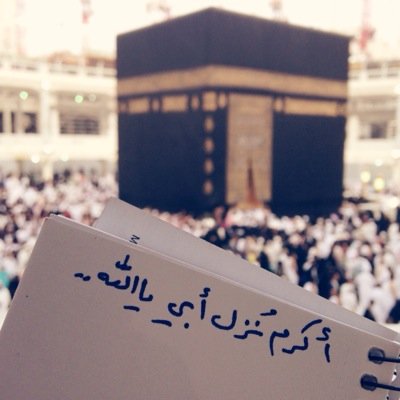 أكرم نُزل أبي يالله..
M